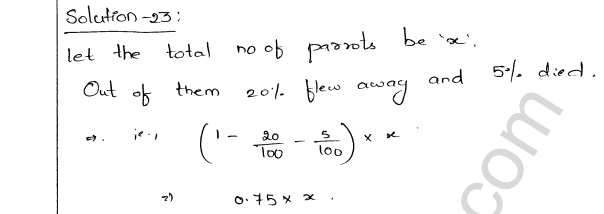 Solution-23:
let the total no of parrots be 'x'.
Out of them 20% flew away and 5% died.
⇒. ie., (1 - 20/100 - 5/100) × x
⇒ 0.75 × x.
.com